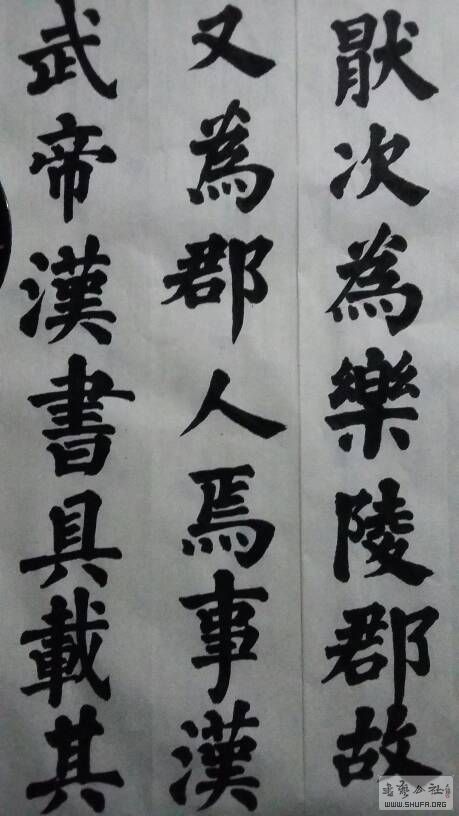 猒次為樂陵郡故
又為郡人焉事漢
武帝漢書具載其
WWW.SHUFA.ORG